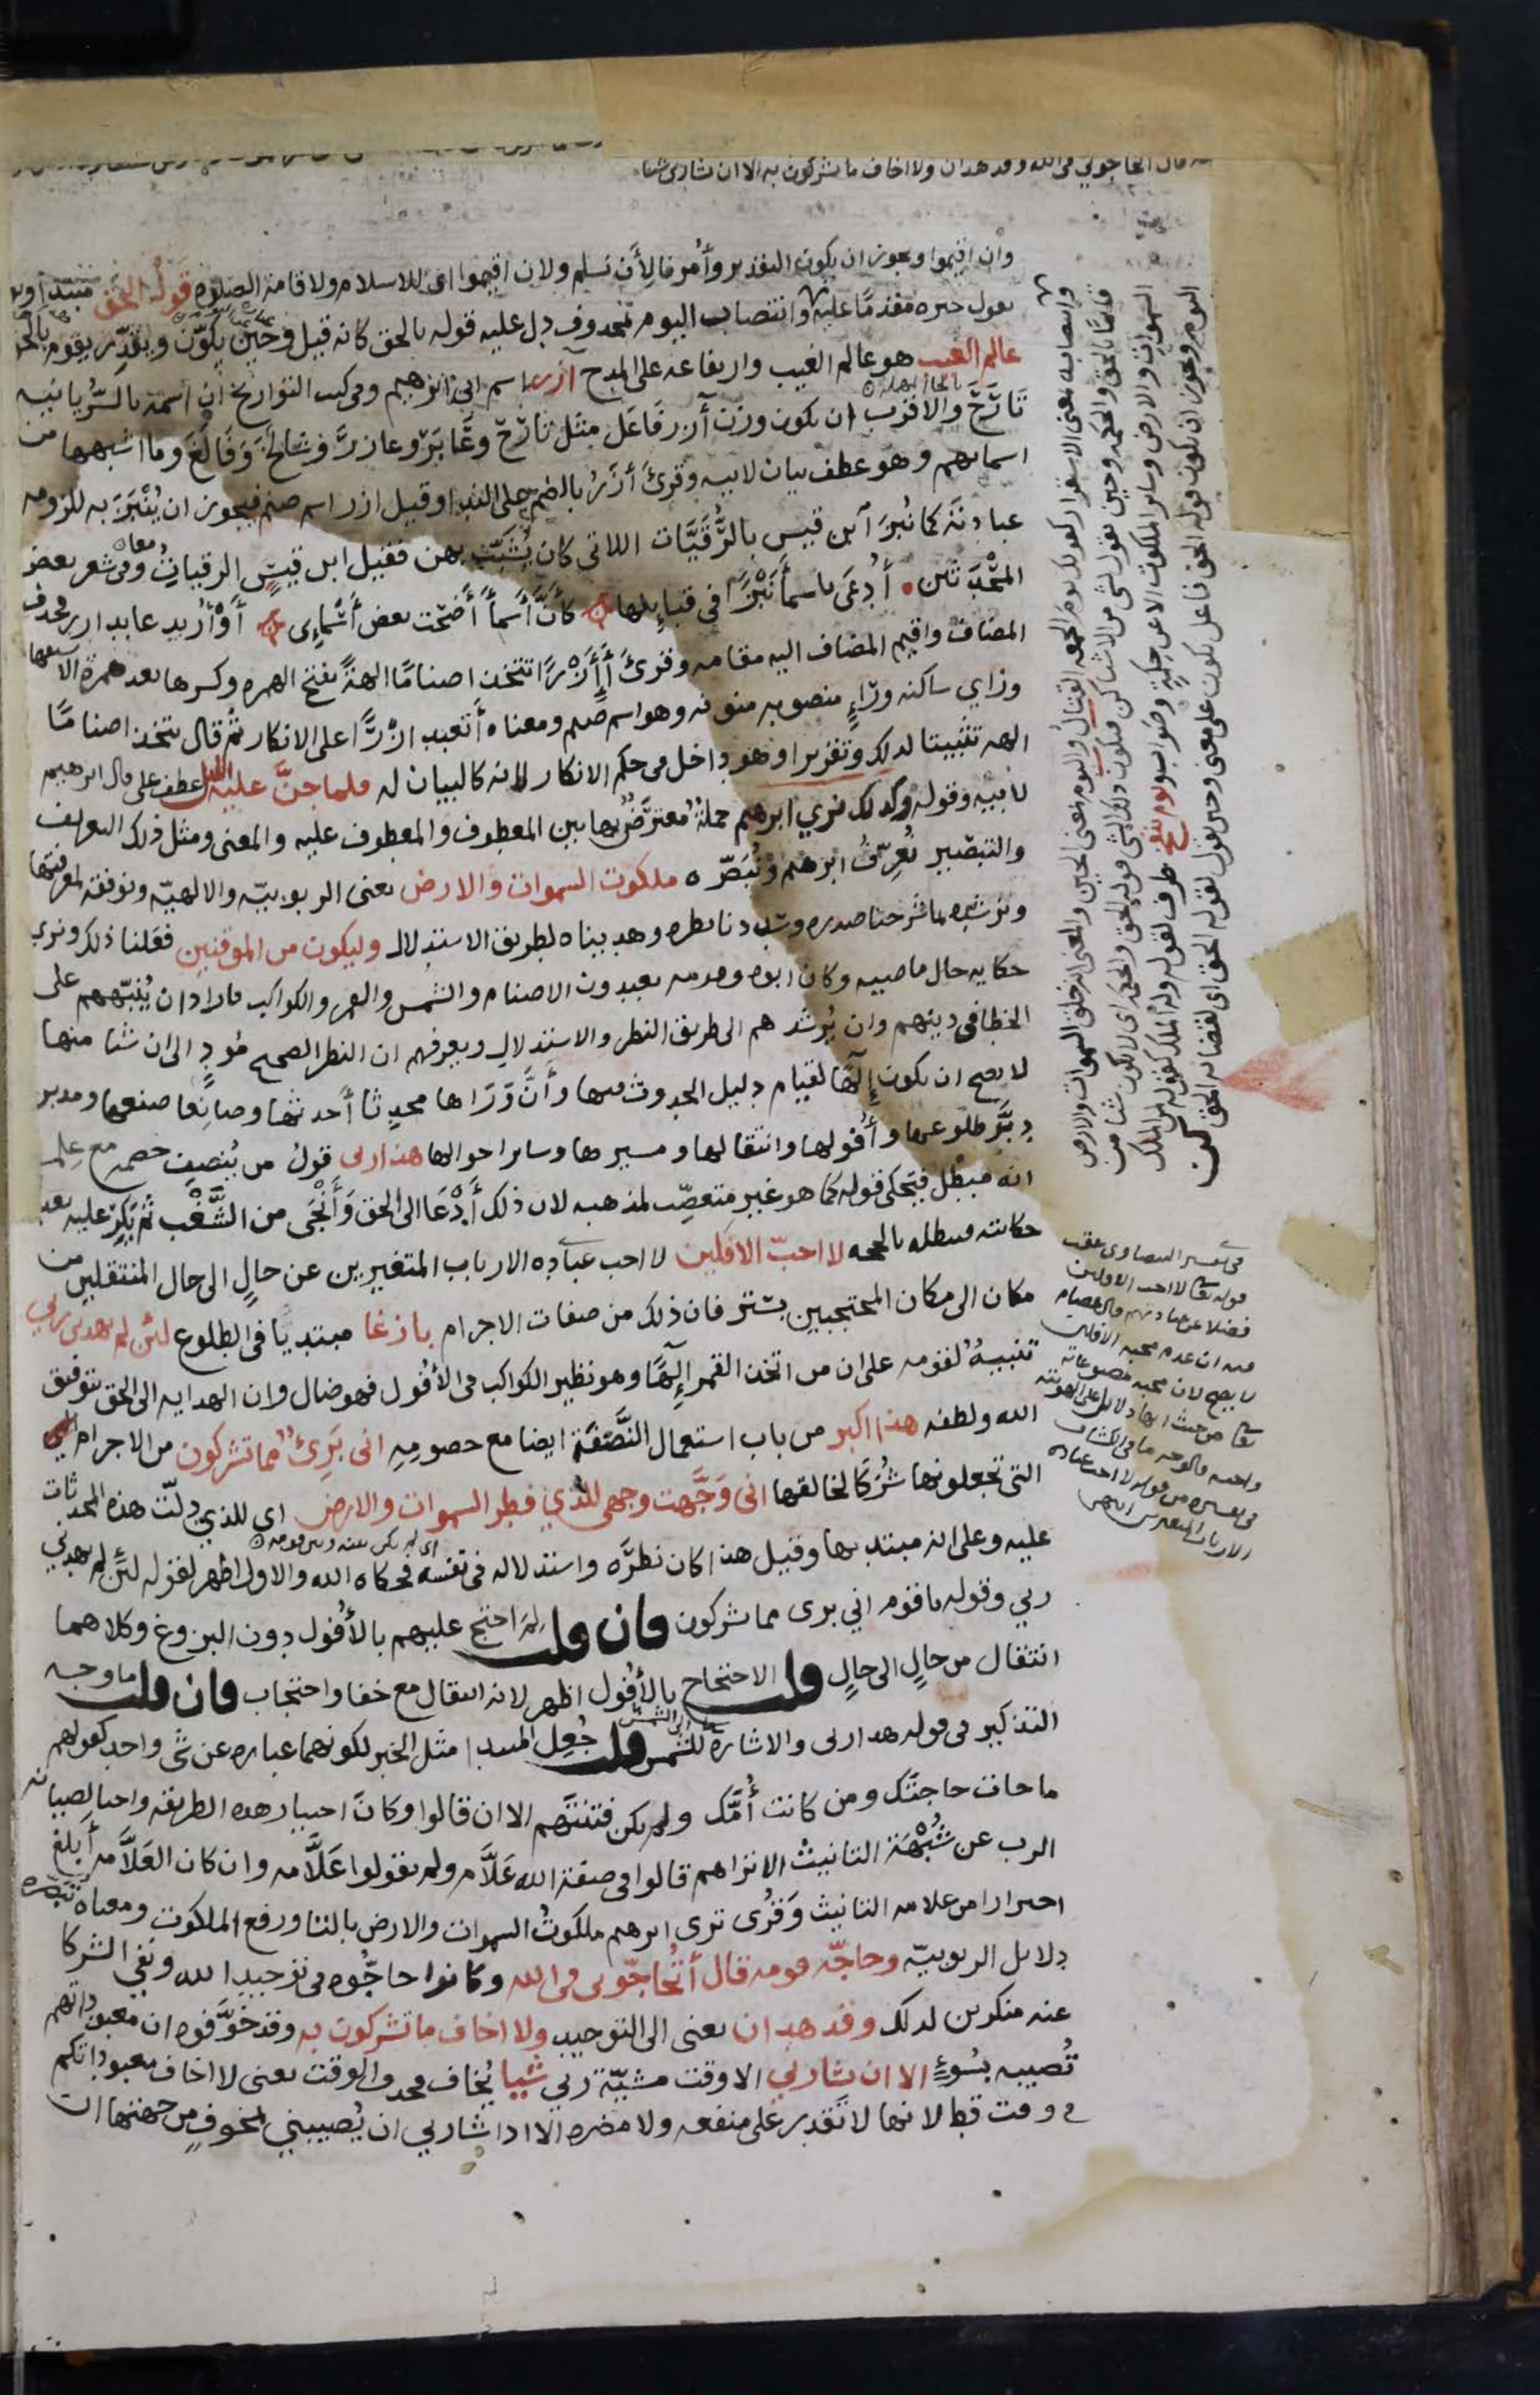 قال اتحاجوني في الله وقد هدان ولا اخاف ما تشركون به الا ان يشا ربي شيا
وان اقيموا ويجوز ان يكون التقدير وأمرنا لأن نسلم ولان اقيموا اي للاسلام ولاقامة الصلوة قوله الحق مبتدا ويوم
يقول خبره مقدمًا عليه وانتصاب اليوم بمحذوف دل عليه قوله بالحق كانه قيل وحين يكوّن ويقدّر يقوم بالحق
عالم الغيب هو عالم الغيب وارتفاعه على المدح آزر اسم ابي ابراهيم وفي كتب التواريخ ان اسمه بالسُّريانيه
تَارَحَ والاقرب ان يكون وزن آزر فَاعَل مثل تارَح وعَابَرَ وعازرَ وشالخَ وفَالَغَ وما اشبهها من
اسمائهم وهو عطف بيان لابيه وقرئ أزَرُ بالضم على الندا وقيل ازر اسم صنم فيجوز ان يُنْبَزَ به للزومه
عبادتَهُ كما نُبِزَ ابن قيس بالرُّقَيَّات اللاتي كان يُشَبِّبُ بهن فقيل ابن قيسِ الرقياتِ وفي شعر بعض
المحْدَثين أُدْعَى باسمأَ نَبْزًا في قبايلها كأنَّ أسمأَ أضْحَت بعض أسْماءِي أَوْ أُريد عابد ازر فحذف
المضاف واقيم المضاف اليه مقامه وقرئ أَأَزْرًا تتخذ اصنامًا الهةً بفتح الهمزه وكسرها بعد همزة الاستفهام
وزاي ساكنه وراءٍ منصوبه منونه وهو اسم صنم ومعناه أتعبد ازْرًا على الانكار ثم قال تتخذ اصنامًا
الهه تثبيتا لذلك وتقريرا وهو داخل في حكم الانكار لانه كالبيان له فلما جنَّ عليه الليل عطف على قال ابرهيم
لابيه وقوله وكذلك نري ابرهيم جملةٌ مُعترَضٌ بها بين المعطوف والمعطوف عليه والمعنى ومثل ذلك التعريف
والتبصير نُعرِّفُ ابرهيم ونُبَصّره ملكوت السموات والارض يعنى الربوبيّه والالهيّه ونوفقه لمعرفتها
ونرشده بما شرحنا صدره وسددنا نظره وهديناه لطريق الاستدلال وليكون من الموقنين فعلنا ذلك ونري
حكايه حال ماضيه وكان ابوه وقومه يعبدون الاصنام والشمس والقمر والكواكب فاراد ان يُنَبّههم على
الخطا في دينهم وان يُرشدهم الى طريق النظر والاستدلال ويعرفهم ان النظر الصحيح مُودٍ الى ان شيا منها
لا يصح ان يكون إلَهًا لقيام دليل الحدوث فيها وأنَّ وَرَاها محدِثا أحدثها وصانِعا صنعها ومدبر
دبَّر طلوعها وأفولها وانتقالها ومسيرها وساير احوالها هذا ربي قولُ من يُنصِف خصمه مع عِلمه
انه مبْطِل فيَحكي قوله كما هو غير متعصّب لمذهبه لان ذلك أدْعَا الى الحق وأنْجَى من الشَّغْب ثم يَكِرّ عليه بعد
حكايته فيبطله بالحجه لا احبّ الافلين لا احب عبادة الارباب المتغيرين عن حالٍ الى حال المنتقلين من
مكان الى مكان المحتجبين بستر فان ذلك من صفات الاجرام بازغا مبتديا في الطلوع لئن لم يهدني ربي
تنبيهٌ لقومه على ان من اتخذ القمر إلَهًا وهو نظير الكواكب في الأفول فهو ضال وان الهدايه الى الحق بتوفيق
الله ولطفه هذا اكبر من باب استعمال النَّصَفَة ايضا مع خصومِهِ اني بَرِئٌ مما تشركون من الاجرام
التي تجعلونها شُرَكَا لخالقها اني وَجَّهت وجهي للذي فطر السموات والارض اي للذي دلّت هذه المحدثات
عليه وعلى انه مبتديها وقيل هذا كان نظَرَه واستدلاله في نفسه فحكاه الله والاول اظهر لقوله لئن لم يهدني
ربي وقوله يا قوم اني برى مما تشركون فان قلت لِمَ احتج عليهم بالأُفول دون البزوغ وكلاهما
انتقال من حالٍ الى حالٍ قلت الاحتجاج بالأفول اظهر لانه انتقال مع خفا واحتجاب فان قلت ما وجه
التذكير في قوله هذا ربي والاشاره للشمس قلت جُعِل المبتدا مثل الخبر لكونهما عباره عن شى واحد كقولهم
ما جاءت حاجتَك ومن كانت أُمَّك ولم تكن فتنتَهم الا ان قالوا وكان اختيار هذه الطريقه واجبا لصيانه
الرب عن شُبْهَة التانيث الا تراهم قالوا في صفة الله عَلَّام ولم يقولوا عَلَّامه وان كان العَلَّامه أبلغ
احترازا من علامه التانيث وقُرى ترى ابرهيم ملكوتُ السموات والارض بالتا ورفع الملكوت ومعناه تبصره
دلايل الربوبيّه وحاجّه قومه قال أتُحاجّونى فى الله وكانوا حاجُّوه في توحيد الله ونفي الشركا
عنه منكرين لذلك وقد هدان يعنى الى التوحيد ولا اخاف ما تشركون به وقد خوَّفوه ان معبوداتهم
تُصيبه بسُوءٍ الا ان يشا ربي الا وقت مشيّة ربي شيا يُخاف فحذف الوقت يعنى لا اخاف معبوداتكم
في وقت قط لانها لا تَقدِر على منفعه ولا مضره الا اذا شا ربي ان يُصيبني بمخوفٍ من جهتها ان
وانتصابه بمعنى الاستقرار كقولك يوم الجمعه القتالُ واليوم بمعنى الحين والمعنى انه خلق السموات والارض
قايمًا بالحق والحكمه وحين يقول لشى من الاشيا كن فيكون ذلك الشى قوله الحق والحكمه اي لا يكون شيا من
السموات والارض وساير المكونات الا عن حكمةٍ وصوابٍ ويوم ينفخ ظرف لقوله وله الملك كقوله لمن الملك
اليوم ويجوز ان يكون قوله الحق فاعل يكون على معنى وحين يقول لقوله الحق اي لقضائه الحق كن
في تفسير البيضاوي عقب
قوله تعا لا احب الافلين
فضلا عن عبادتهم
فيه ان عدم محبه الافلين
لا يصح لان محبه مصنوعاته
تعا من حيث انها دلايل على الوهيته
واجبه فالوجه ما في الكشاف
في تفسيره من قوله لا احب عباده
الارباب المتغيرين انتهى